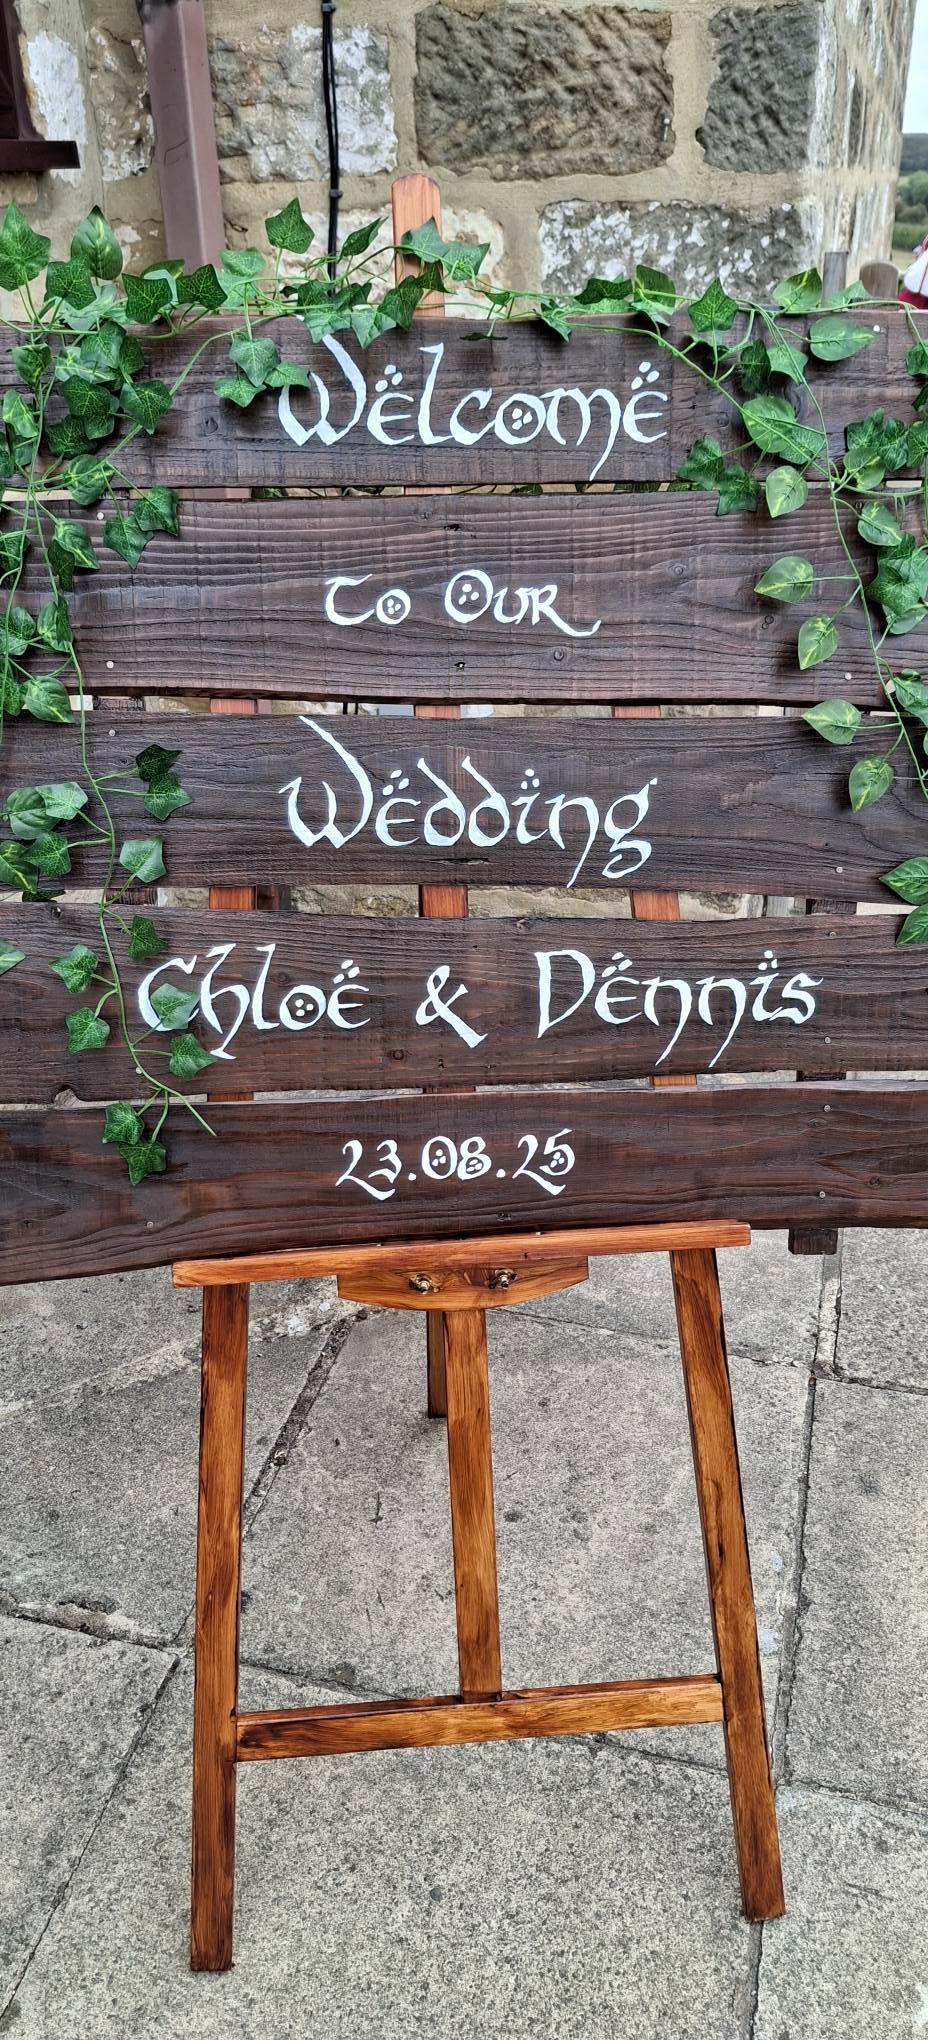 Welcome
To Our
Wedding
Chloe & Dennis
23.08.25